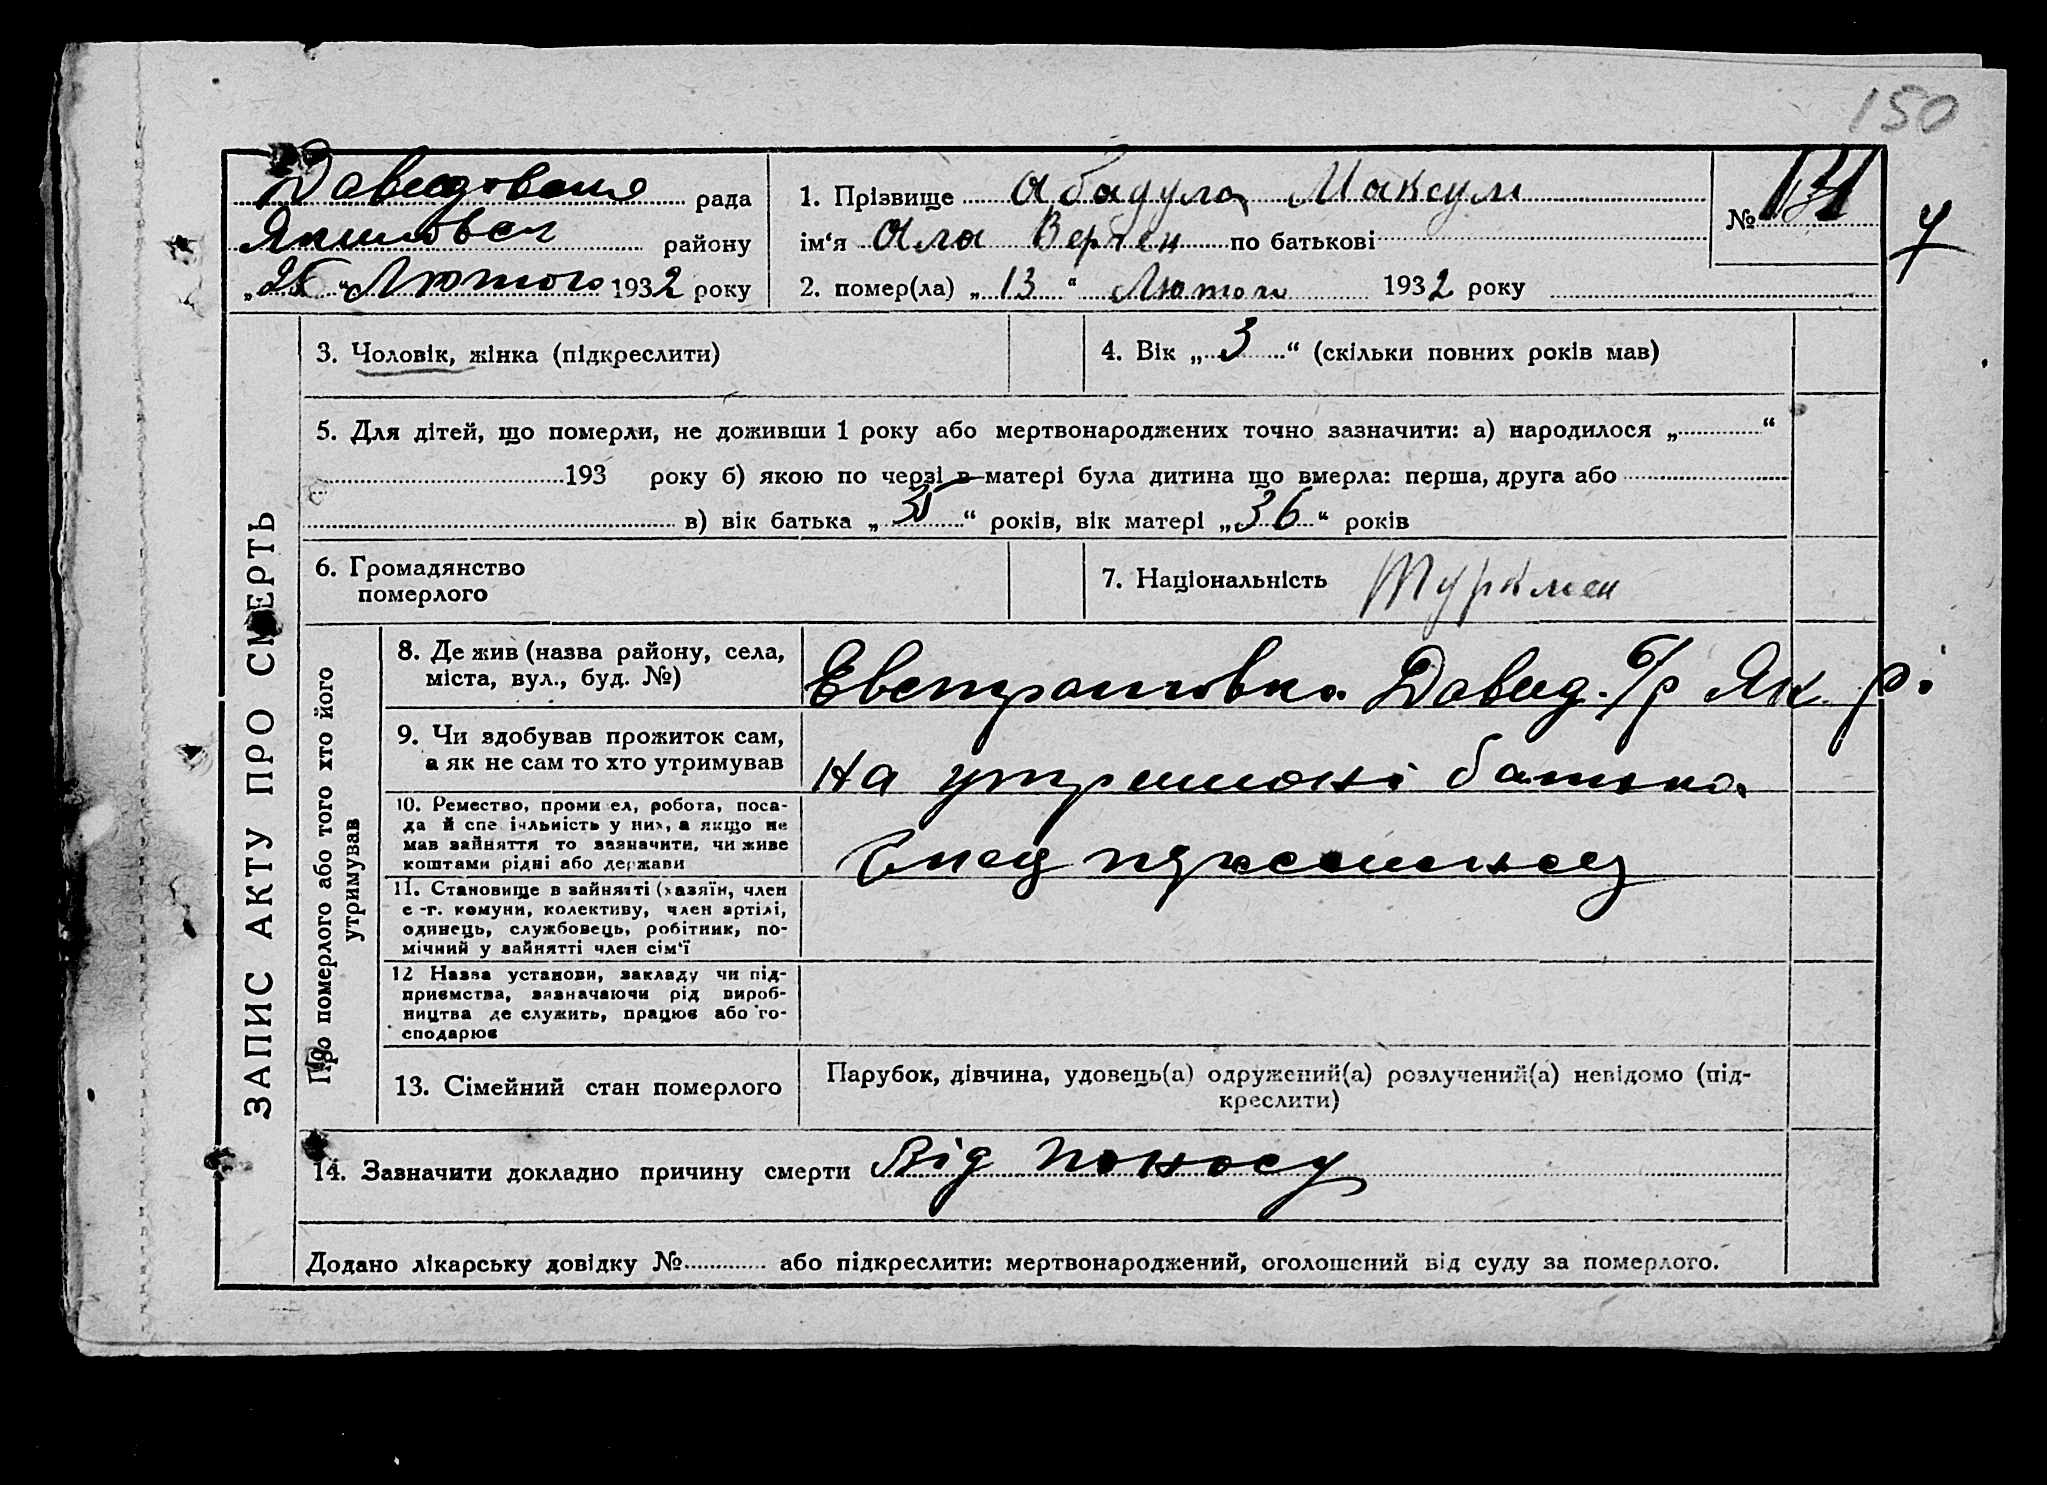 150
Давидовська рада
Якимовск району
„26“ Лютого 1932 року
1. Прізвище Абадула Максум
ім‘я Ала Верген по батькові
2. помер(ла) „13“ Лютого 1932 року
№ 131
У
ЗАПИС АКТУ ПРО СМЕРТЬ
3. Чоловік, жінка (підкреслити)
4. Вік „3“ (скільки повних років мав)
5. Для дітей, що померли, не доживши 1 року або мертвонароджених точно зазначити: а) народилося „ “
193 року б) якою по черзі в матері була дитина що вмерла: перша, друга або
в) вік батька „35“ років, вік матері „36“ років
6. Громадянство
померлого
7. Національність Туркмен
Про померлого або того хто його
утримував
8. Де жив (назва району, села,
міста, вул., буд. №)
Евстратовка Давид. С/р Як. р.
9. Чи здобував прожиток сам,
а як не сам то хто утримував
На утриманні батька
10. Ремество, промисел, робота, поса-
да й спеціяльність у них, а якщо не
мав зайняття то зазначити, чи живе
коштами рідні або держави
11. Становище в зайнятті (хазяїн, член
с.-г. комуни, колективу, член артілі,
одинець, службовець, робітник, по-
мічний у зайнятті член сім‘ї
12 Назва установи, закладу чи під-
приємства, зазначаючи рід вироб-
ництва де служить, працює або го-
сподарює
13. Сімейний стан померлого
Парубок, дівчина, удовець(а) одружений(а) розлучений(а) невідомо (під-
креслити)
14. Зазначити докладно причину смерти Від поносу
Додано лікарську довідку № або підкреслити: мертвонароджений, оголошений від суду за померлого.